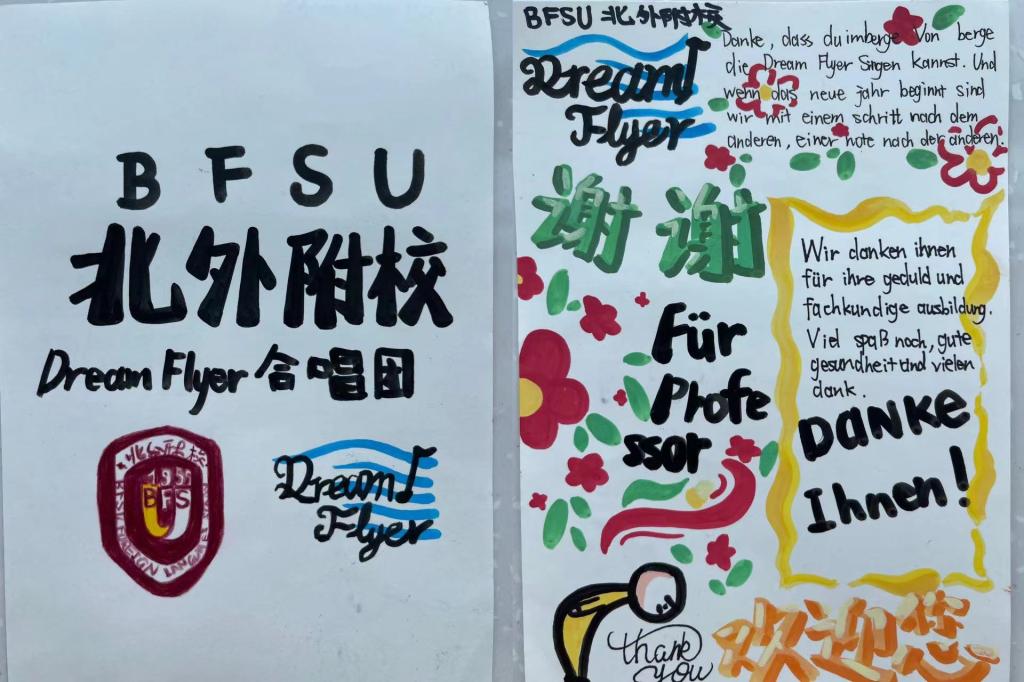 BFSU
北外附校
Dream Flyer 合唱团
1959
BFSU
Dream
Flyer
BFSU 北外附校
Dream
Flyer
Danke, dass du imberge Von berge
die Dream Flyer Singen kannst. Und
wenn das neue jahr beginnt sind
wir mit einem schritt nach dem
anderen, einer note nach der anderen.
谢谢
Für
Profe
ssor
Wir danken ihnen
für ihre geduld und
fachkundige ausbildung.
Viel spaß noch, gute
gesundheit und vielen
dank.
Danke
Ihnen!
thank
you
欢迎您